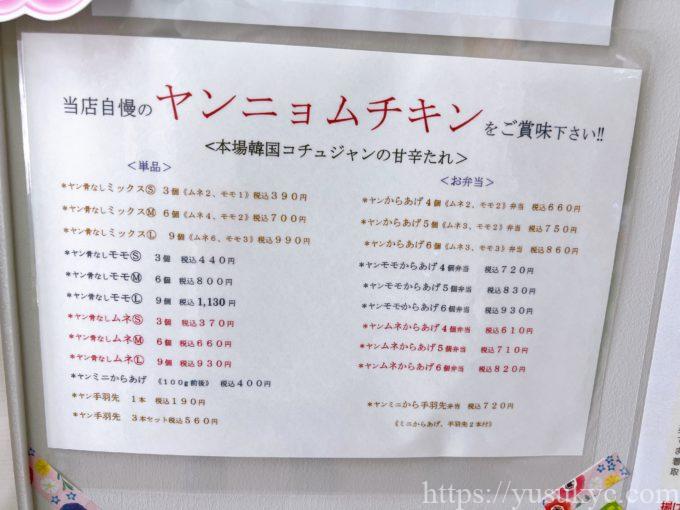 当店自慢のヤンニョムチキンをご賞味下さい!!
<本場韓国コチュジャンの甘辛たれ>
<単品>
*ヤン骨なしミックスⓈ 3個《ムネ2、モモ1》税込390円
*ヤン骨なしミックスⓂ 6個《ムネ4、モモ2》税込700円
*ヤン骨なしミックスⓁ 9個《ムネ6、モモ3》税込990円
*ヤン骨なしモモⓈ 3個 税込440円
*ヤン骨なしモモⓂ 6個 税込800円
*ヤン骨なしモモⓁ 9個 税込1,130円
*ヤン骨なしムネⓈ 3個 税込370円
*ヤン骨なしムネⓂ 6個 税込660円
*ヤン骨なしムネⓁ 9個 税込930円
*ヤンミニからあげ 《100g前後》 税込400円
*ヤン手羽先 1本 税込190円
*ヤン手羽先 3本セット税込560円
<お弁当>
*ヤンからあげ4個《ムネ2、モモ2》弁当 税込660円
*ヤンからあげ5個《ムネ3、モモ2》弁当 税込750円
*ヤンからあげ6個《ムネ3、モモ3》弁当 税込860円
*ヤンモモからあげ4個弁当 税込720円
*ヤンモモからあげ5個弁当 税込830円
*ヤンモモからあげ6個弁当 税込930円
*ヤンムネからあげ4個弁当 税込610円
*ヤンムネからあげ5個弁当 税込710円
*ヤンムネからあげ6個弁当 税込820円
*ヤンミニから手羽先弁当 税込720円
《ミニからあげ、手羽先2本付》
https://yusukyc.com